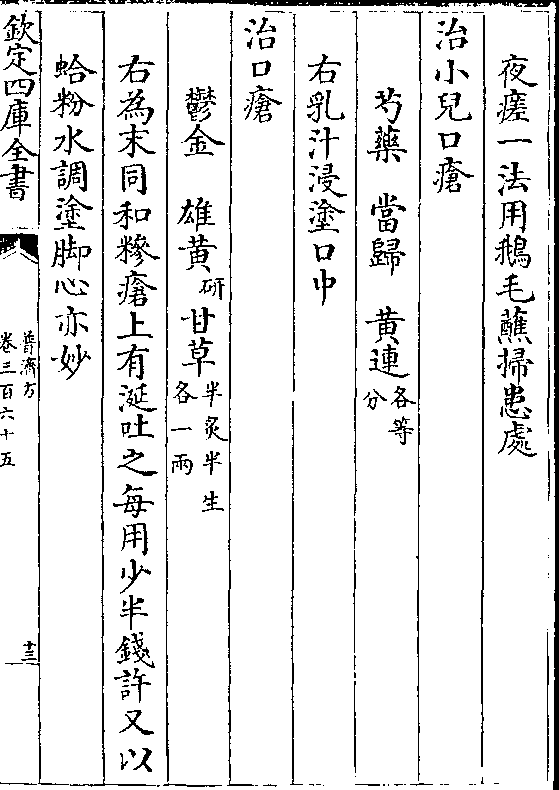 夜瘥一法用鵝毛蘸掃患處
治小兒口瘡
芍藥　當歸　黄連各等分
右乳汁浸塗口中
治口瘡
鬱金　雄黄研　甘草半炙半生各一兩
右為末同和糝瘡上有涎吐之每用少半錢許又以
蛤粉水調塗脚心亦妙
欽定四庫全書
普濟方
卷三百六十五
十三